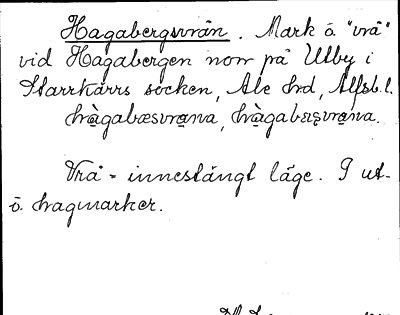 Hagabergsvrån. Mark o. "vrå"
vid Hagabergen norr på Utby i
Starrkärrs socken, Ale hrd, Älfsb. l.
hàgabæsvrana, hàgabeisvrana.
Vrå = innestängt läge. I ut-
o. hagmarker.